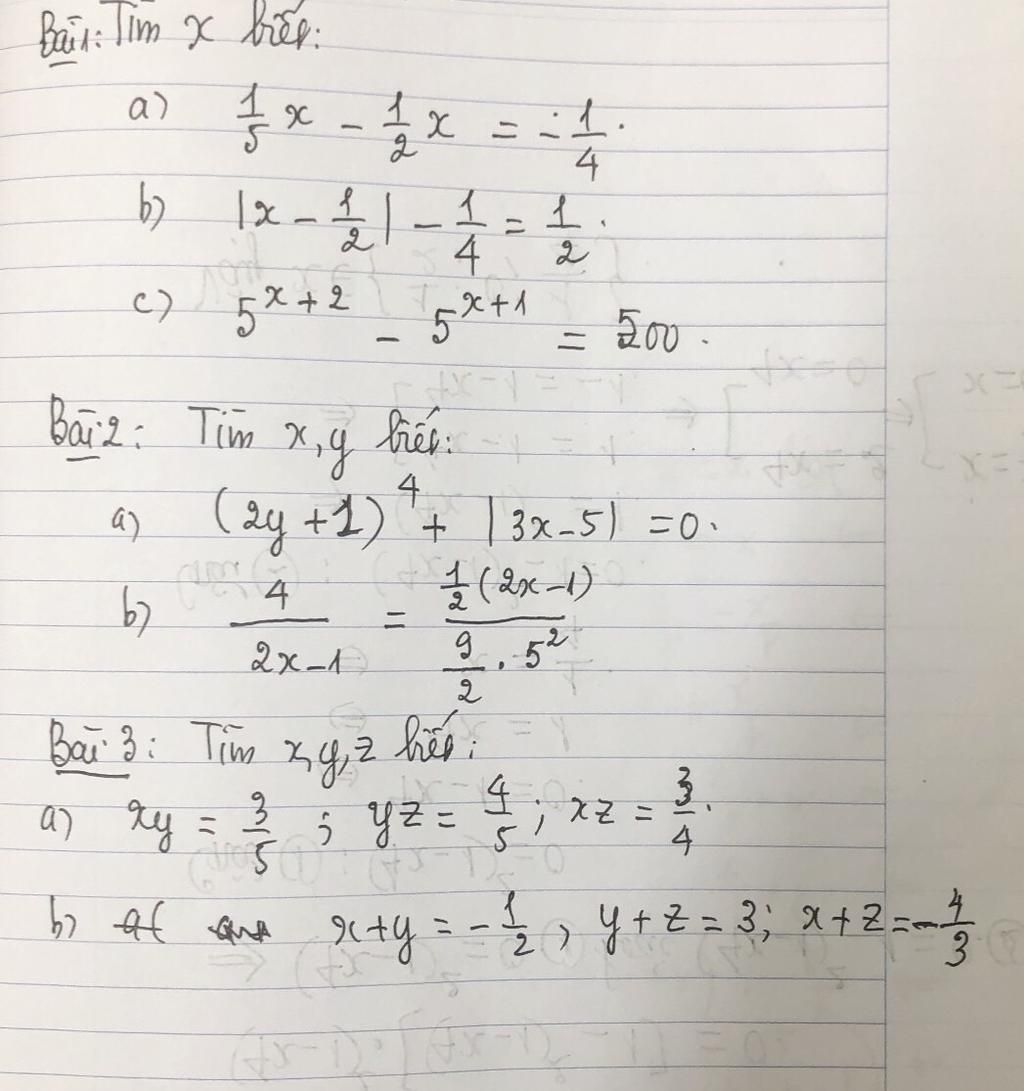 Bài 1: Tìm x biết:
a) 1/5 x - 1/2 x = -1/4.
b) |x - 1/2| - 1/4 = 1/2.
c) 5^(x+2) - 5^(x+1) = 500.
Bài 2: Tìm x, y biết:
a) (2y+1)^4 + |3x-5| = 0.
b) 4/(2x-1) = (1/2 (2x-1))/(9/2 . 5^2)
Bài 3: Tìm x, y, z biết:
a) xy = 3/5 ; yz = 4/5 ; xz = 3/4.
b) x+y = -1/2, y+z = 3; x+z = -4/3